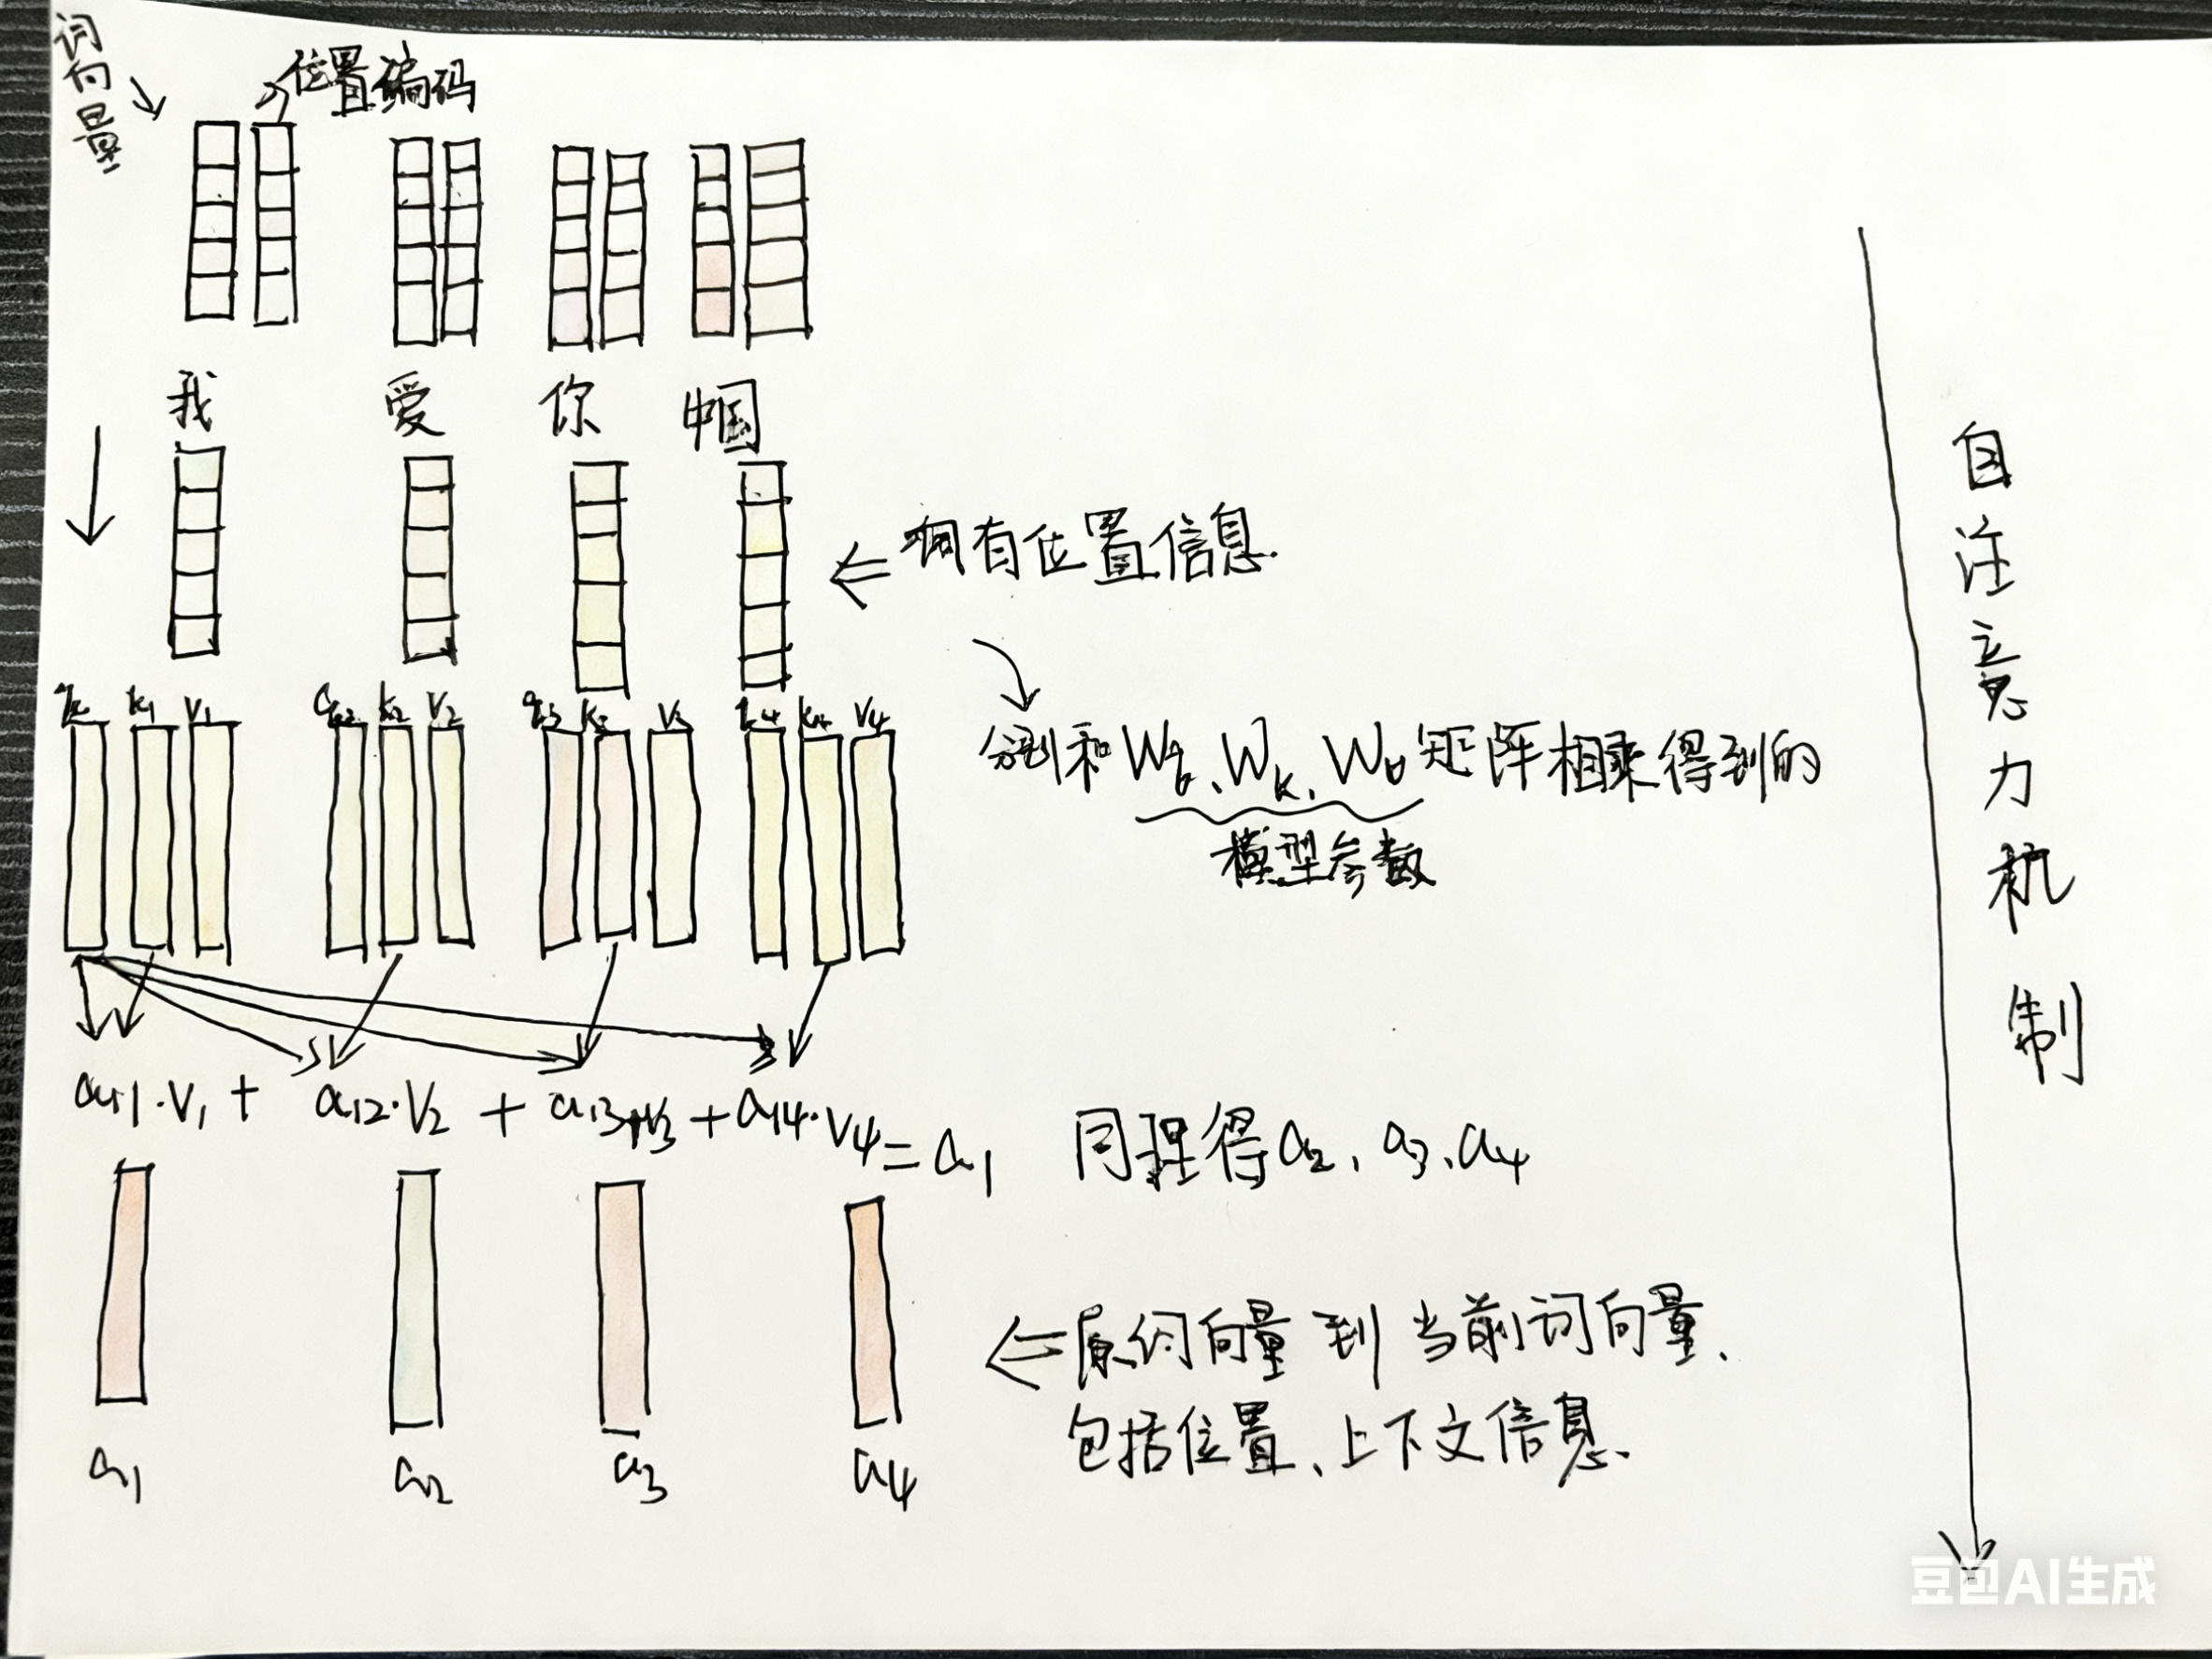 词向量
位置编码
我 爱 你 中国
拥有位置信息.
k₁ v₁ q₂ k₂ v₂ q₃ k₃ v₃ q₄ k₄ v₄
分别和Wq、Wk、Wv矩阵相乘得到的
模型参数
a₁₁·v₁ + a₁₂·v₂ + a₁₃·v₃ + a₁₄·v₄ = a₁ 同理得a₂、a₃、a₄
原词向量到当前词向量、
包括位置、上下文信息.
a₁ a₂ a₃ a₄
自注意力机制
豆包AI生成